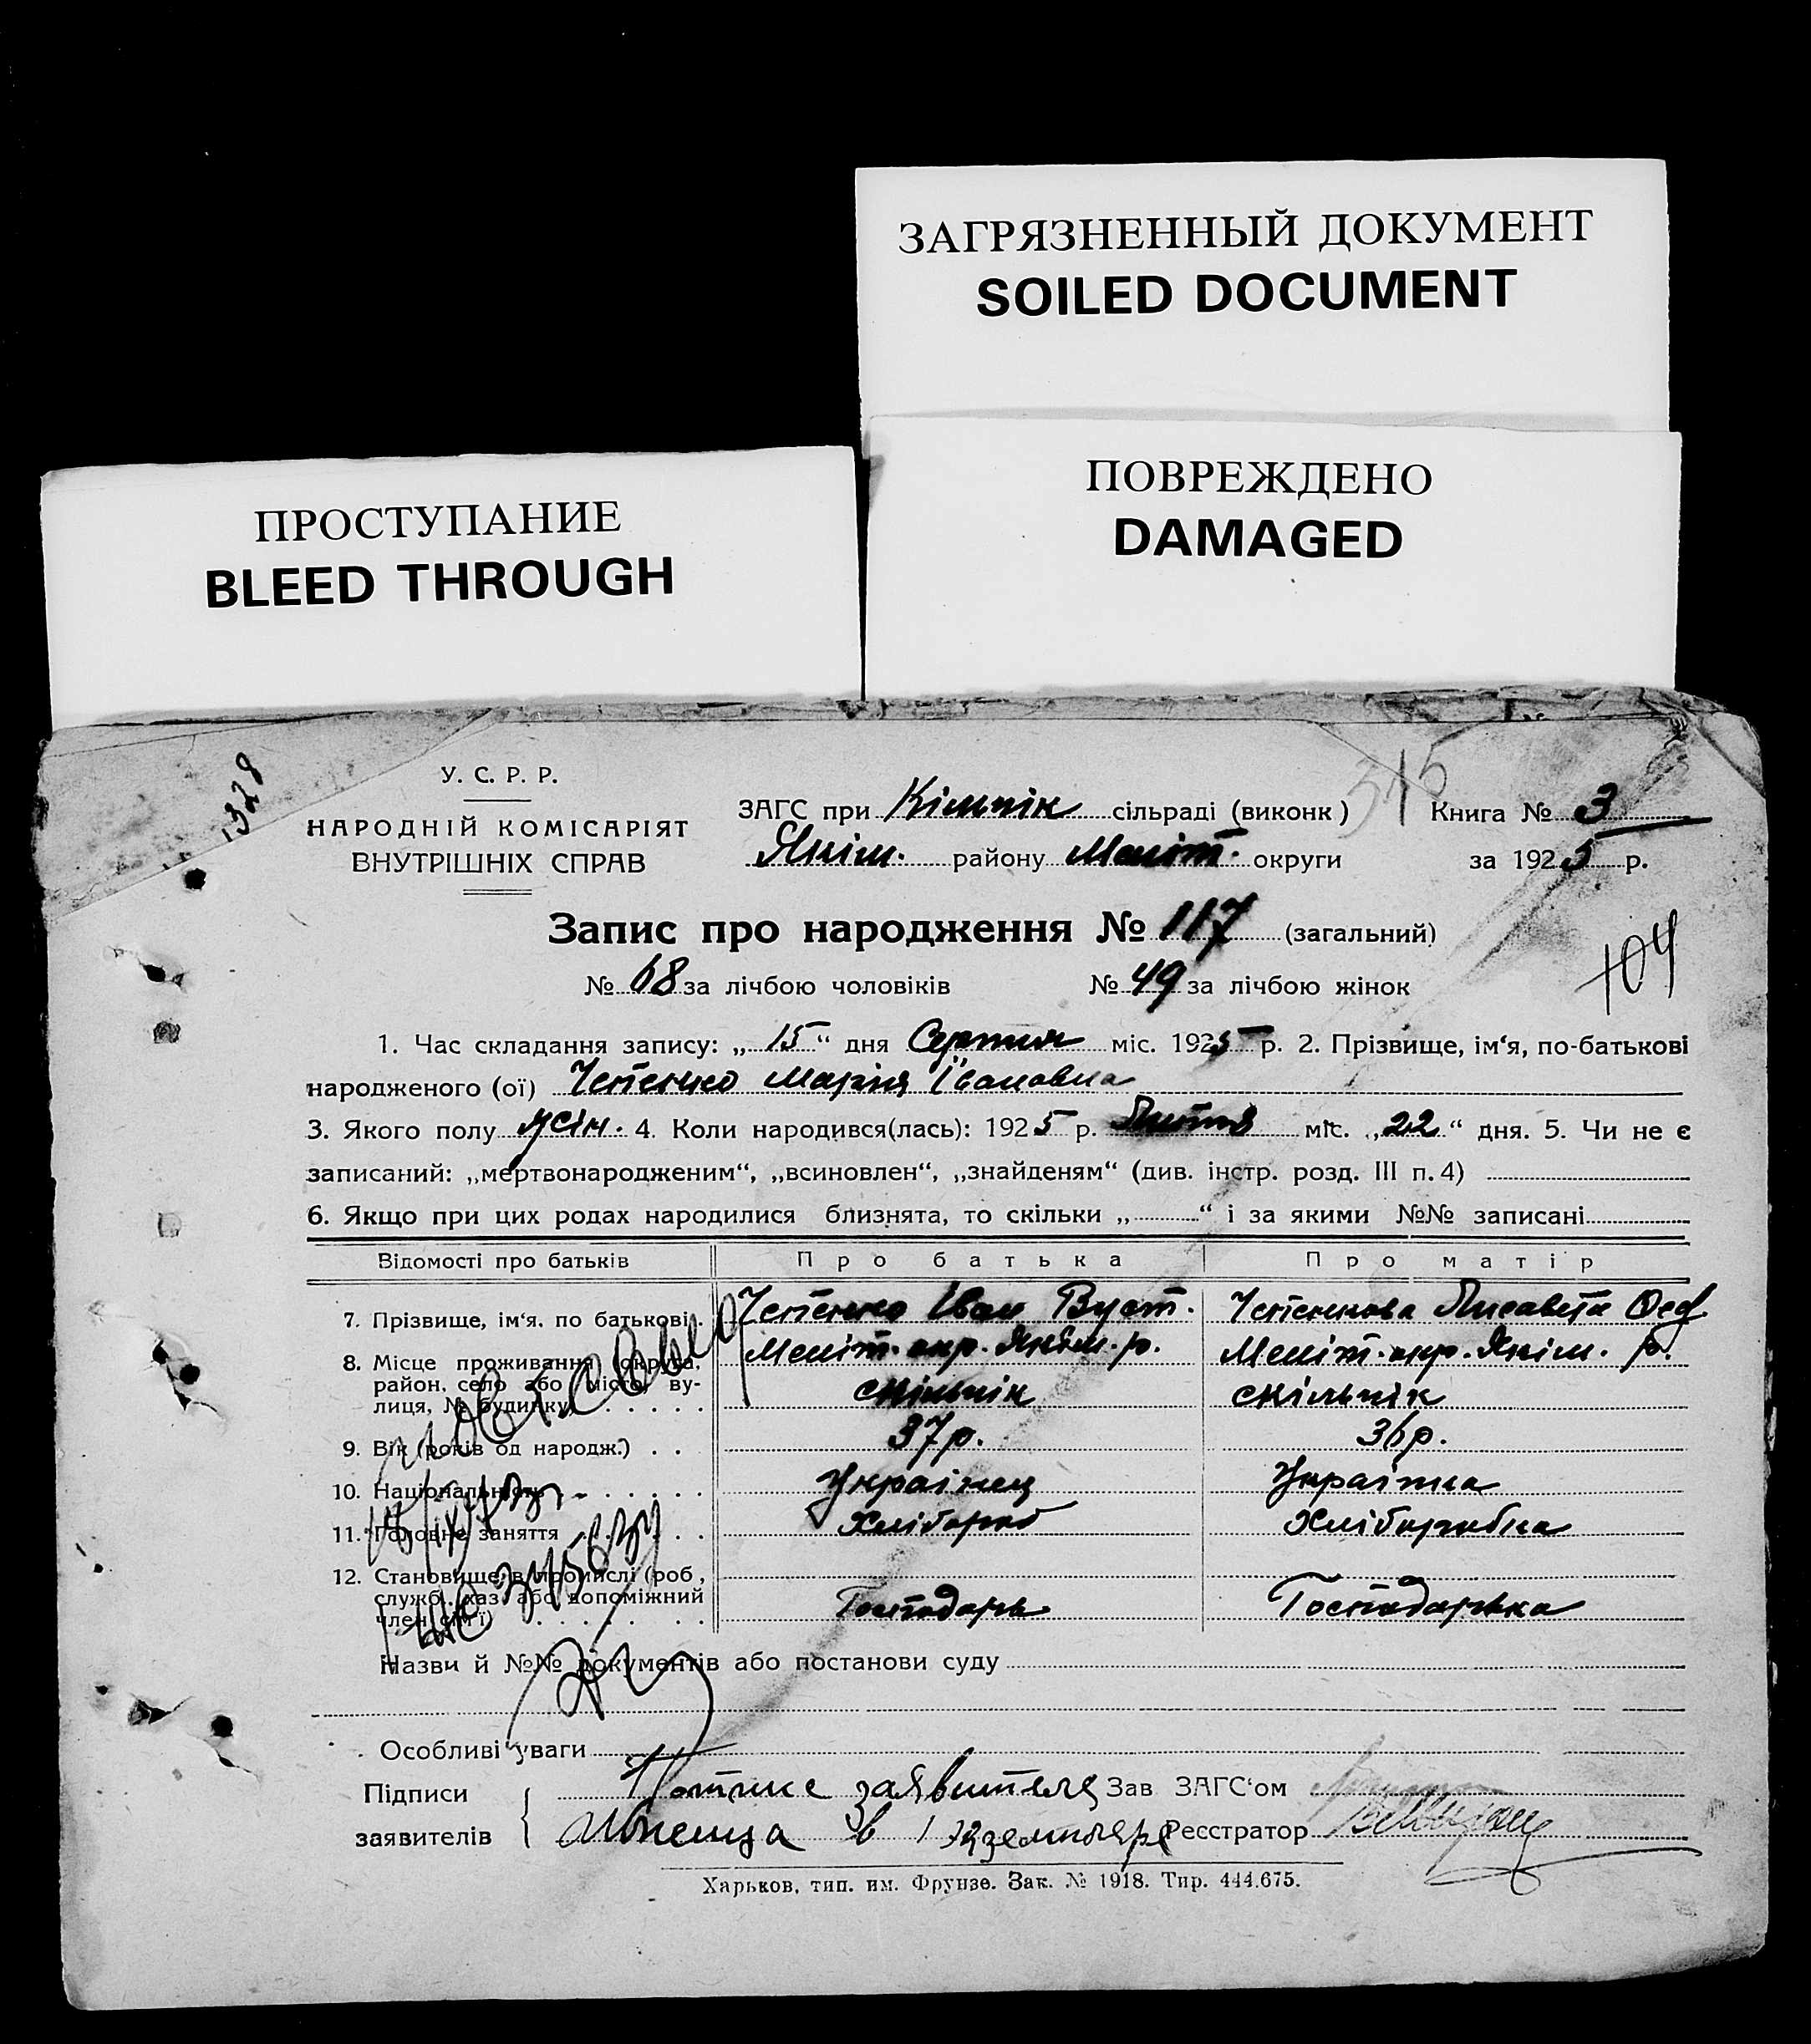 ЗАГРЯЗНЕННЫЙ ДОКУМЕНТ
SOILED DOCUMENT
ПРОСТУПАНИЕ
BLEED THROUGH
ПОВРЕЖДЕНО
DAMAGED
1328
515
У. С. Р. Р.
НАРОДНІЙ КОМІСАРІЯТ
ВНУТРІШНІХ СПРАВ
ЗАГС при Кільпік сільраді (виконк) Книга № 3
Якім. району Меліт. округи за 1925 р.
Запис про народження № 117 (загальний)
104
№ 68 за лічбою чоловіків № 49 за лічбою жінок
1. Час складання запису: „15“ дня Серпня міс. 1925 р. 2. Прізвище, ім'я, по-батькові
народженого (ої) Марія Івановна
3. Якого полу жін. 4. Коли народився(лась): 1925 р. міс. „22“ дня. 5. Чи не є
записаний: „мертвонародженим“, „всиновлен“, „знайденям“ (див. інстр. розд. III п. 4)
6. Якщо при цих родах народилися близнята, то скільки „ “ і за якими №№ записані
Відомості про батьків Про батька Про матір
7. Прізвище, ім'я. по батькові Іван Вуст. Лисавета
8. Місце проживання (округа, Меліт. окр. Якім. р. Меліт. окр. Якім. р.
район, село або місто, ву-
лиця, № будинку) с Кільпік с Кільпік
9. Вік (років од народж.) 37 р. 36 р.
10. Національність Українец Українка
11. Головне заняття Хлібороб Хліборобка
12. Становище в промислі (роб.,
служб., хаз. або допоміжний
член сім'ї) Господарь Господарька
Назви й №№ документів або постанови суду
Особливі уваги
Підписи заявителя Зав ЗАГС'ом
заявителів в 1 Реєстратор
Харьков, тип. им. Фрунзе. Зак. № 1918. Тир. 444.675.